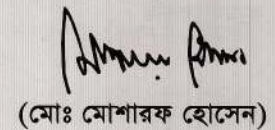 (মোঃ মোশারফ হোসেন)